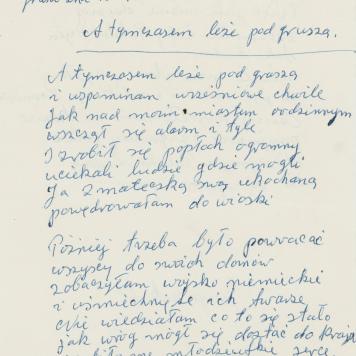 A tymczasem leżę pod gruszą.
A tymczasem leżę pod gruszą
i wspominam wrześniowe chwile
jak nad moim miastem rodzinnym
wszczął się alarm i tyle
I zrobił się popłoch ogromny
uciekali ludzie gdzie mogli
Ja z mateczką swą ukochaną
powędrowałam do wioski
Później trzeba było powracać
wszyscy do swoich domów
zobaczyłam wojsko niemieckie
i uśmiechnięte ich twarze
Nie wiedziałam co to się stało
jak wróg mógł się dostać do kraju
młodzieńkie serce